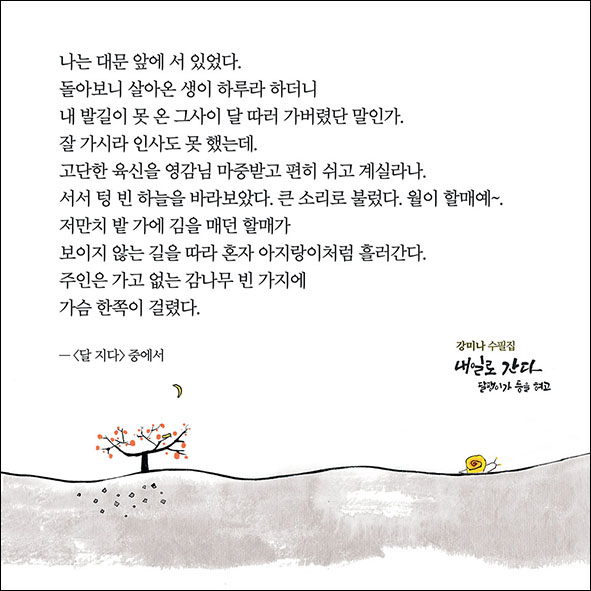 나는 대문 앞에 서 있었다.
돌아보니 살아온 생이 하루라 하더니
내 발길이 못 온 그사이 달 따러 가버렸단 말인가.
잘 가시라 인사도 못 했는데.
고단한 육신을 영감님 마중받고 편히 쉬고 계실라나.
서서 텅 빈 하늘을 바라보았다. 큰 소리로 불렀다. 월이 할매예~.
저만치 밭 가에 김을 매던 할매가
보이지 않는 길을 따라 혼자 아지랑이처럼 흘러간다.
주인은 가고 없는 감나무 빈 가지에
가슴 한쪽이 걸렸다.
―〈달 지다〉 중에서
강미나 수필집
내일로 간다
달팽이가 등을 켜고